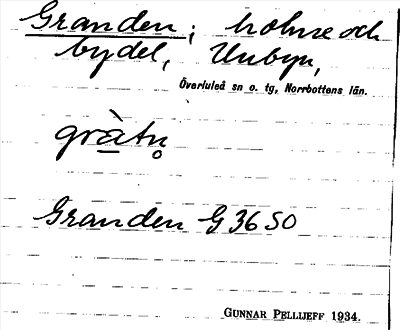 Granden; holme och
bydel, Unbyn,
Överluleå sn o. tg, Norrbottens län.
gràtn̥
Granden G 36 SO
GUNNAR PELLIJEFF 1934.